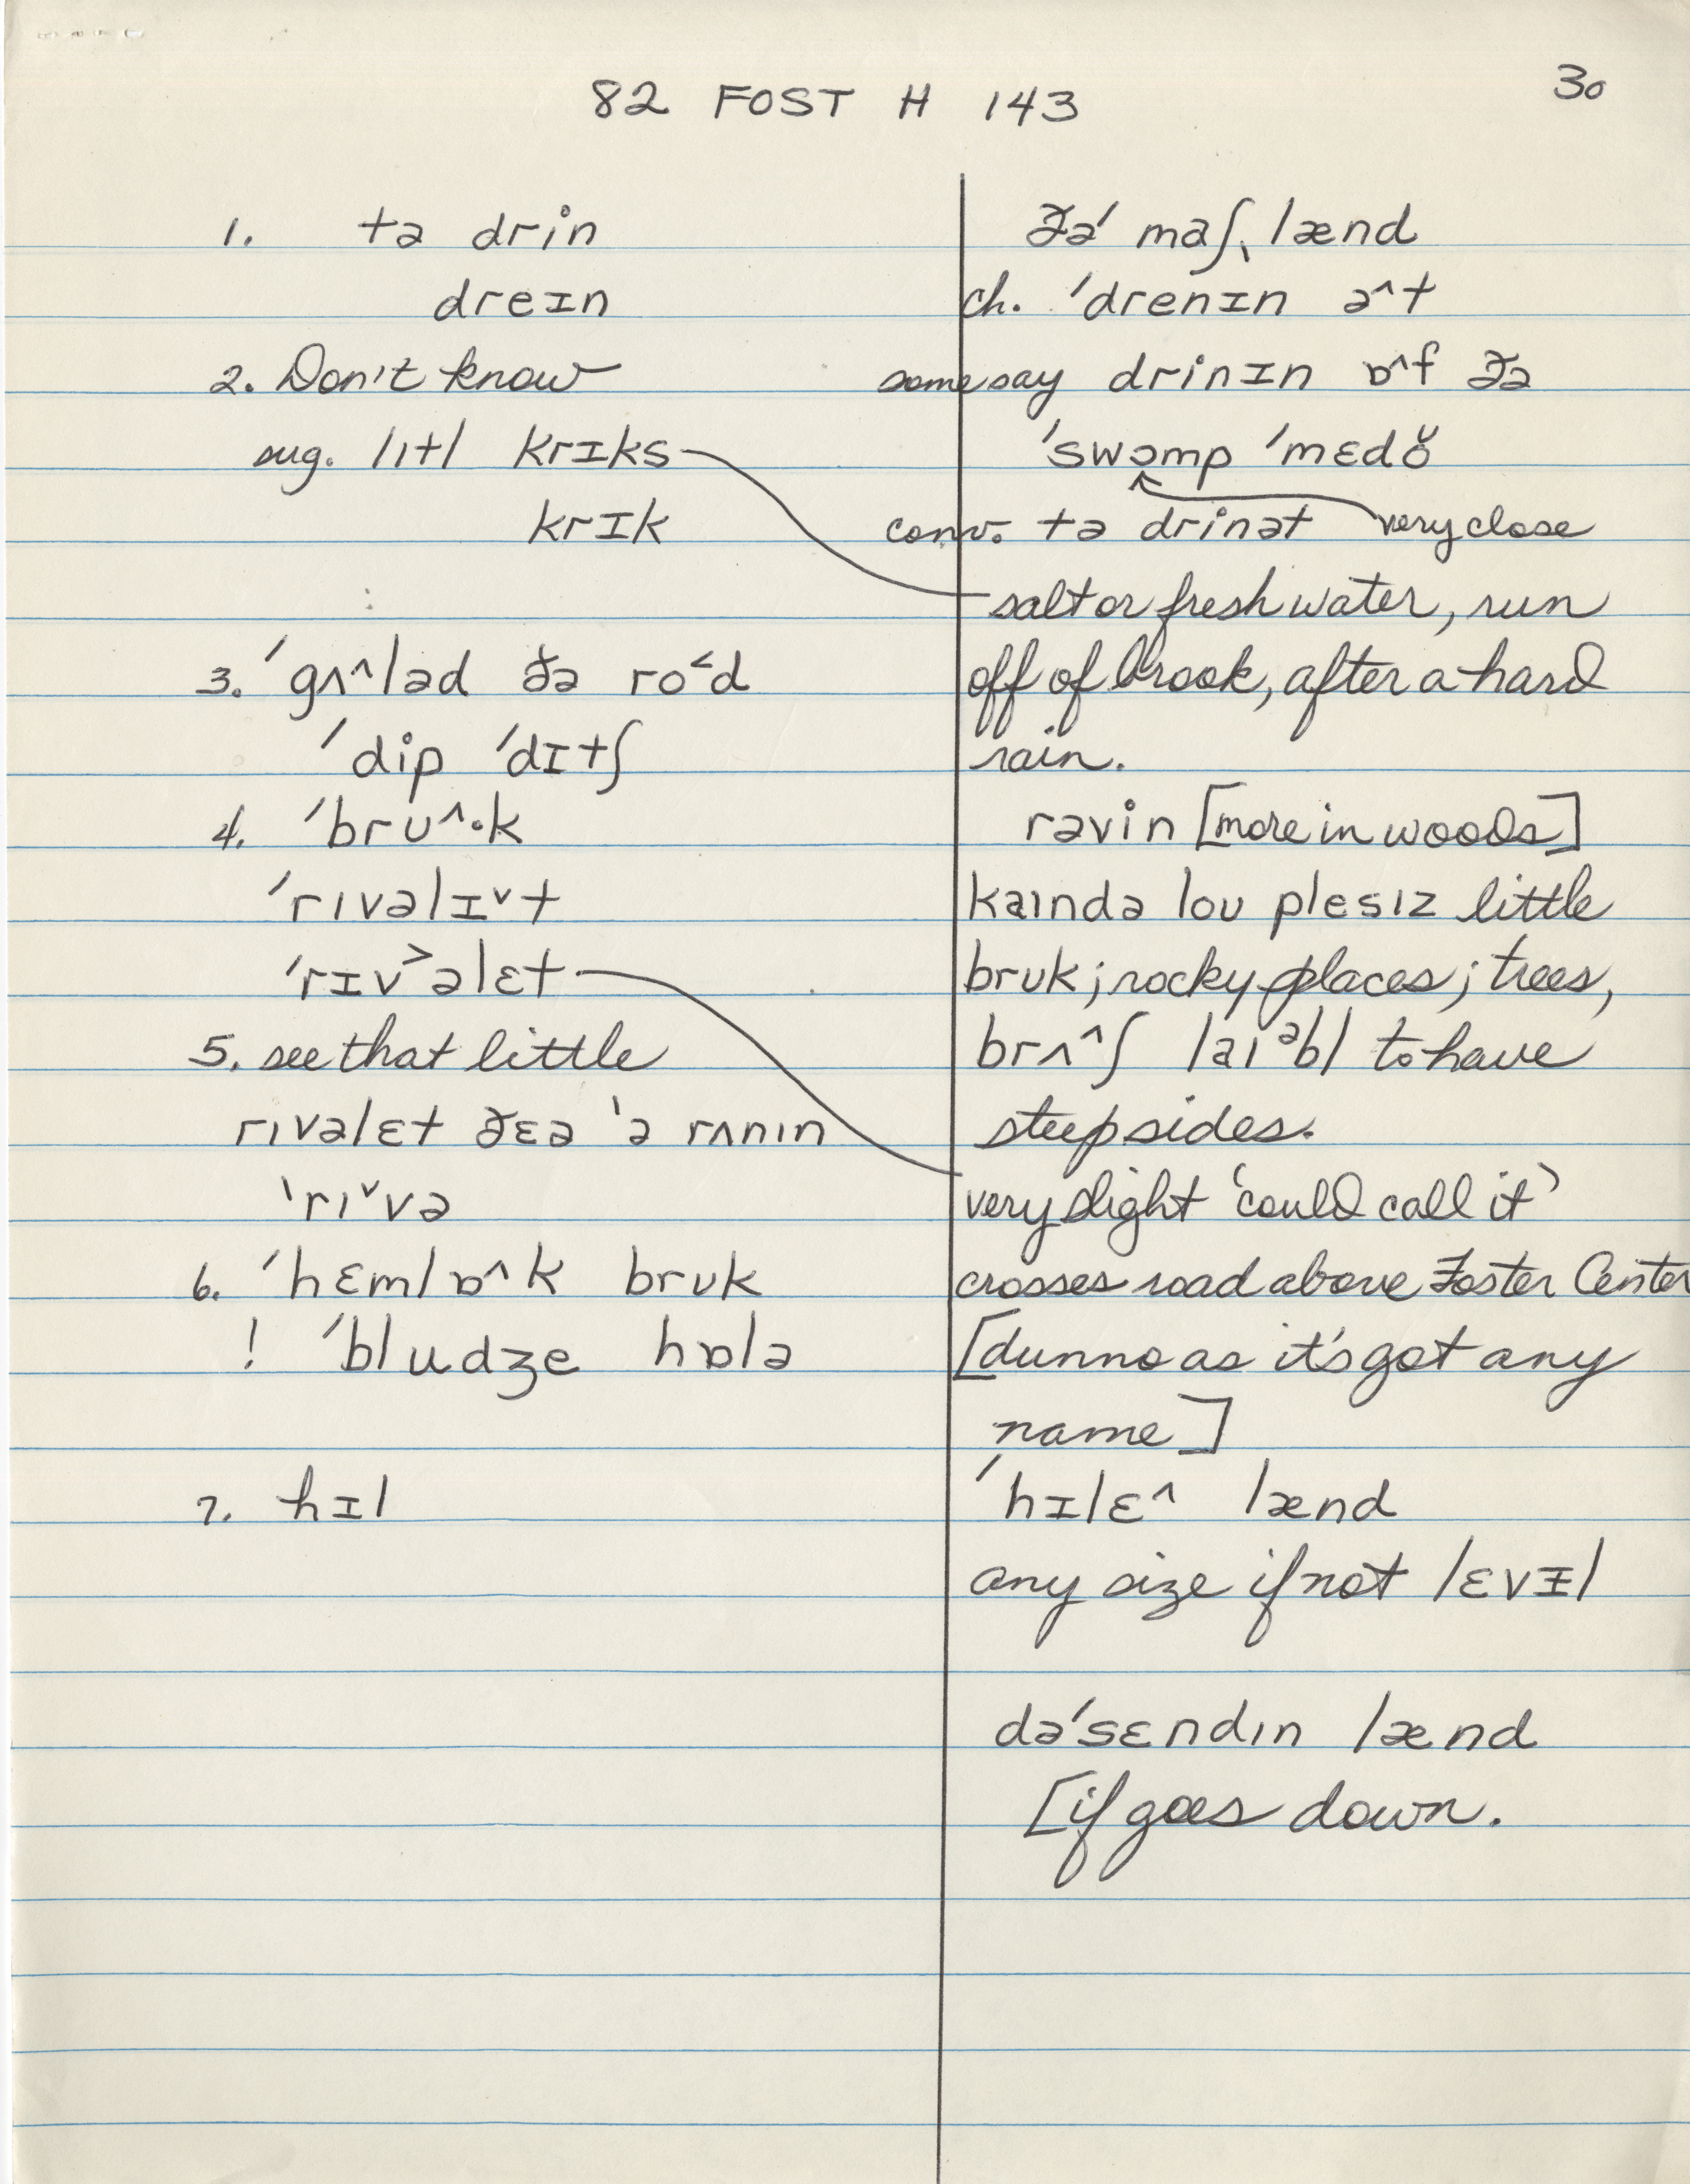 82 FOST H 143
30
1. tə drin
dreɪn
2. Don't know
sug. lɪtl krɪks
krɪk
3. ˈgʌ^ləd ðə ro˂d
ˈdip ˈdɪtʃ
4. ˈbrʊ^·k
ˈrɪvəlɪ˅t
ˈrɪv˃əlɛt
5. see that little
rɪvəlɛt ðɛə ˈə rʌnɪn
ˈrɪ˅və
6. ˈhɛmlɒ^k brʊk
! ˈbludʒe hɒlə
7. hɪl
ðəˈ maʃˌlænd
ch. ˈdrenɪn ə^t
some say drinɪn ɒ^f ðə
ˈswɔmp ˈmɛdŏ
conv. tə drinət very close
salt or fresh water, run
off of brook, after a hard
rain.
rəvin [more in woods]
kaɪndə loʊ plesɪz little
brʊk; rocky places; trees,
brʌ^ʃ laɪᵊbl to have
steep sides.
very slight ‘could call it’
crosses road above Foster Center
[dunno as it's got any
name]
ˈhɪlɛ^ lænd
any size if not lɛvɪ̵l
dəˈsɛndɪn lænd
[if goes down.